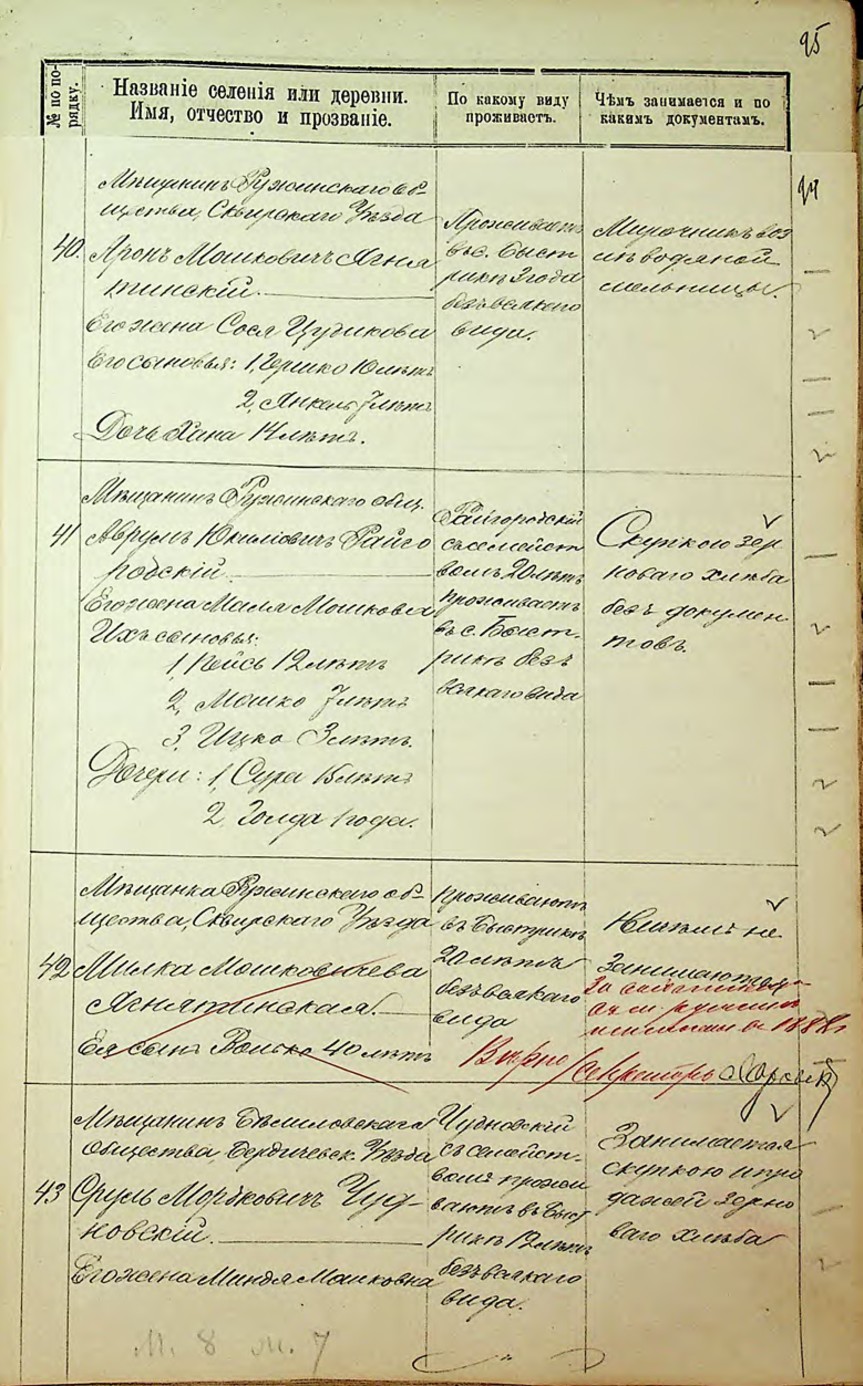 95
№ по по-
рядку.
Названіе селенія или деревни.
Имя, отчество и прозваніе.
По какому виду
проживаетъ.
Чѣмъ занимается и по
какимъ документамъ.
Мѣщанинъ Ружинскаго об-
щества, Сквирскаго Уѣзда
40. Аронъ Мошковичъ Ягня
тинскій.
Его жена Сося Цудикова
Его сыновья: 1, Гершко 10 лѣтъ
2, Янкель 7 лѣтъ
Дочь Хана 14 лѣтъ.
Проживаетъ
въ с. Быст
рикѣ 3 года
безъ всякаго
вида.
Мирочникъ воз
лѣ водяной
мельницы.
Мѣщанинъ Ружинскаго общ.
41 Аврумъ Юкиліовичъ Райго
родскій
Его жена Маля Мошкова
Ихъ сыновья:
1, Пейсь 12 лѣтъ
2, Мошко 7 лѣтъ
3, Ицко 3 лѣтъ.
Дочери: 1, Сура 15 лѣтъ
2, Голда 1 года.
Райгородскій
съ семейст
вомъ 20 лѣтъ
проживаетъ
въ с. Быст-
рикѣ безъ
всякаго вида
Скупкою зер
новаго хлѣба
безъ докумен
товъ.
Мѣщанка Ружинскаго об-
щества, Сквирскаго Уѣзда
42 Милка Мошковичева
Ягнятинская.
Ея сынъ Волько 40 лѣтъ
Проживаютъ
въ Быстрикѣ
20 лѣтъ
безъ всякаго
вида
Ничѣмъ не
занимаются
Вѣрно / Секретарь
Мѣщанинъ Бѣлиловскаго
Общества, Бердичевск. Уѣзда
43 Сруль Мордковичъ Чуд-
новскій.
Его жена Миндля Машковна
Чудновскій
съ семейст-
вомъ прожи
ваютъ въ Быст
рикѣ 12 лѣтъ
безъ всякаго
вида.
Занимается
скупкою и про
дажей зерно
ваго хлѣба
М. 8 м. 7